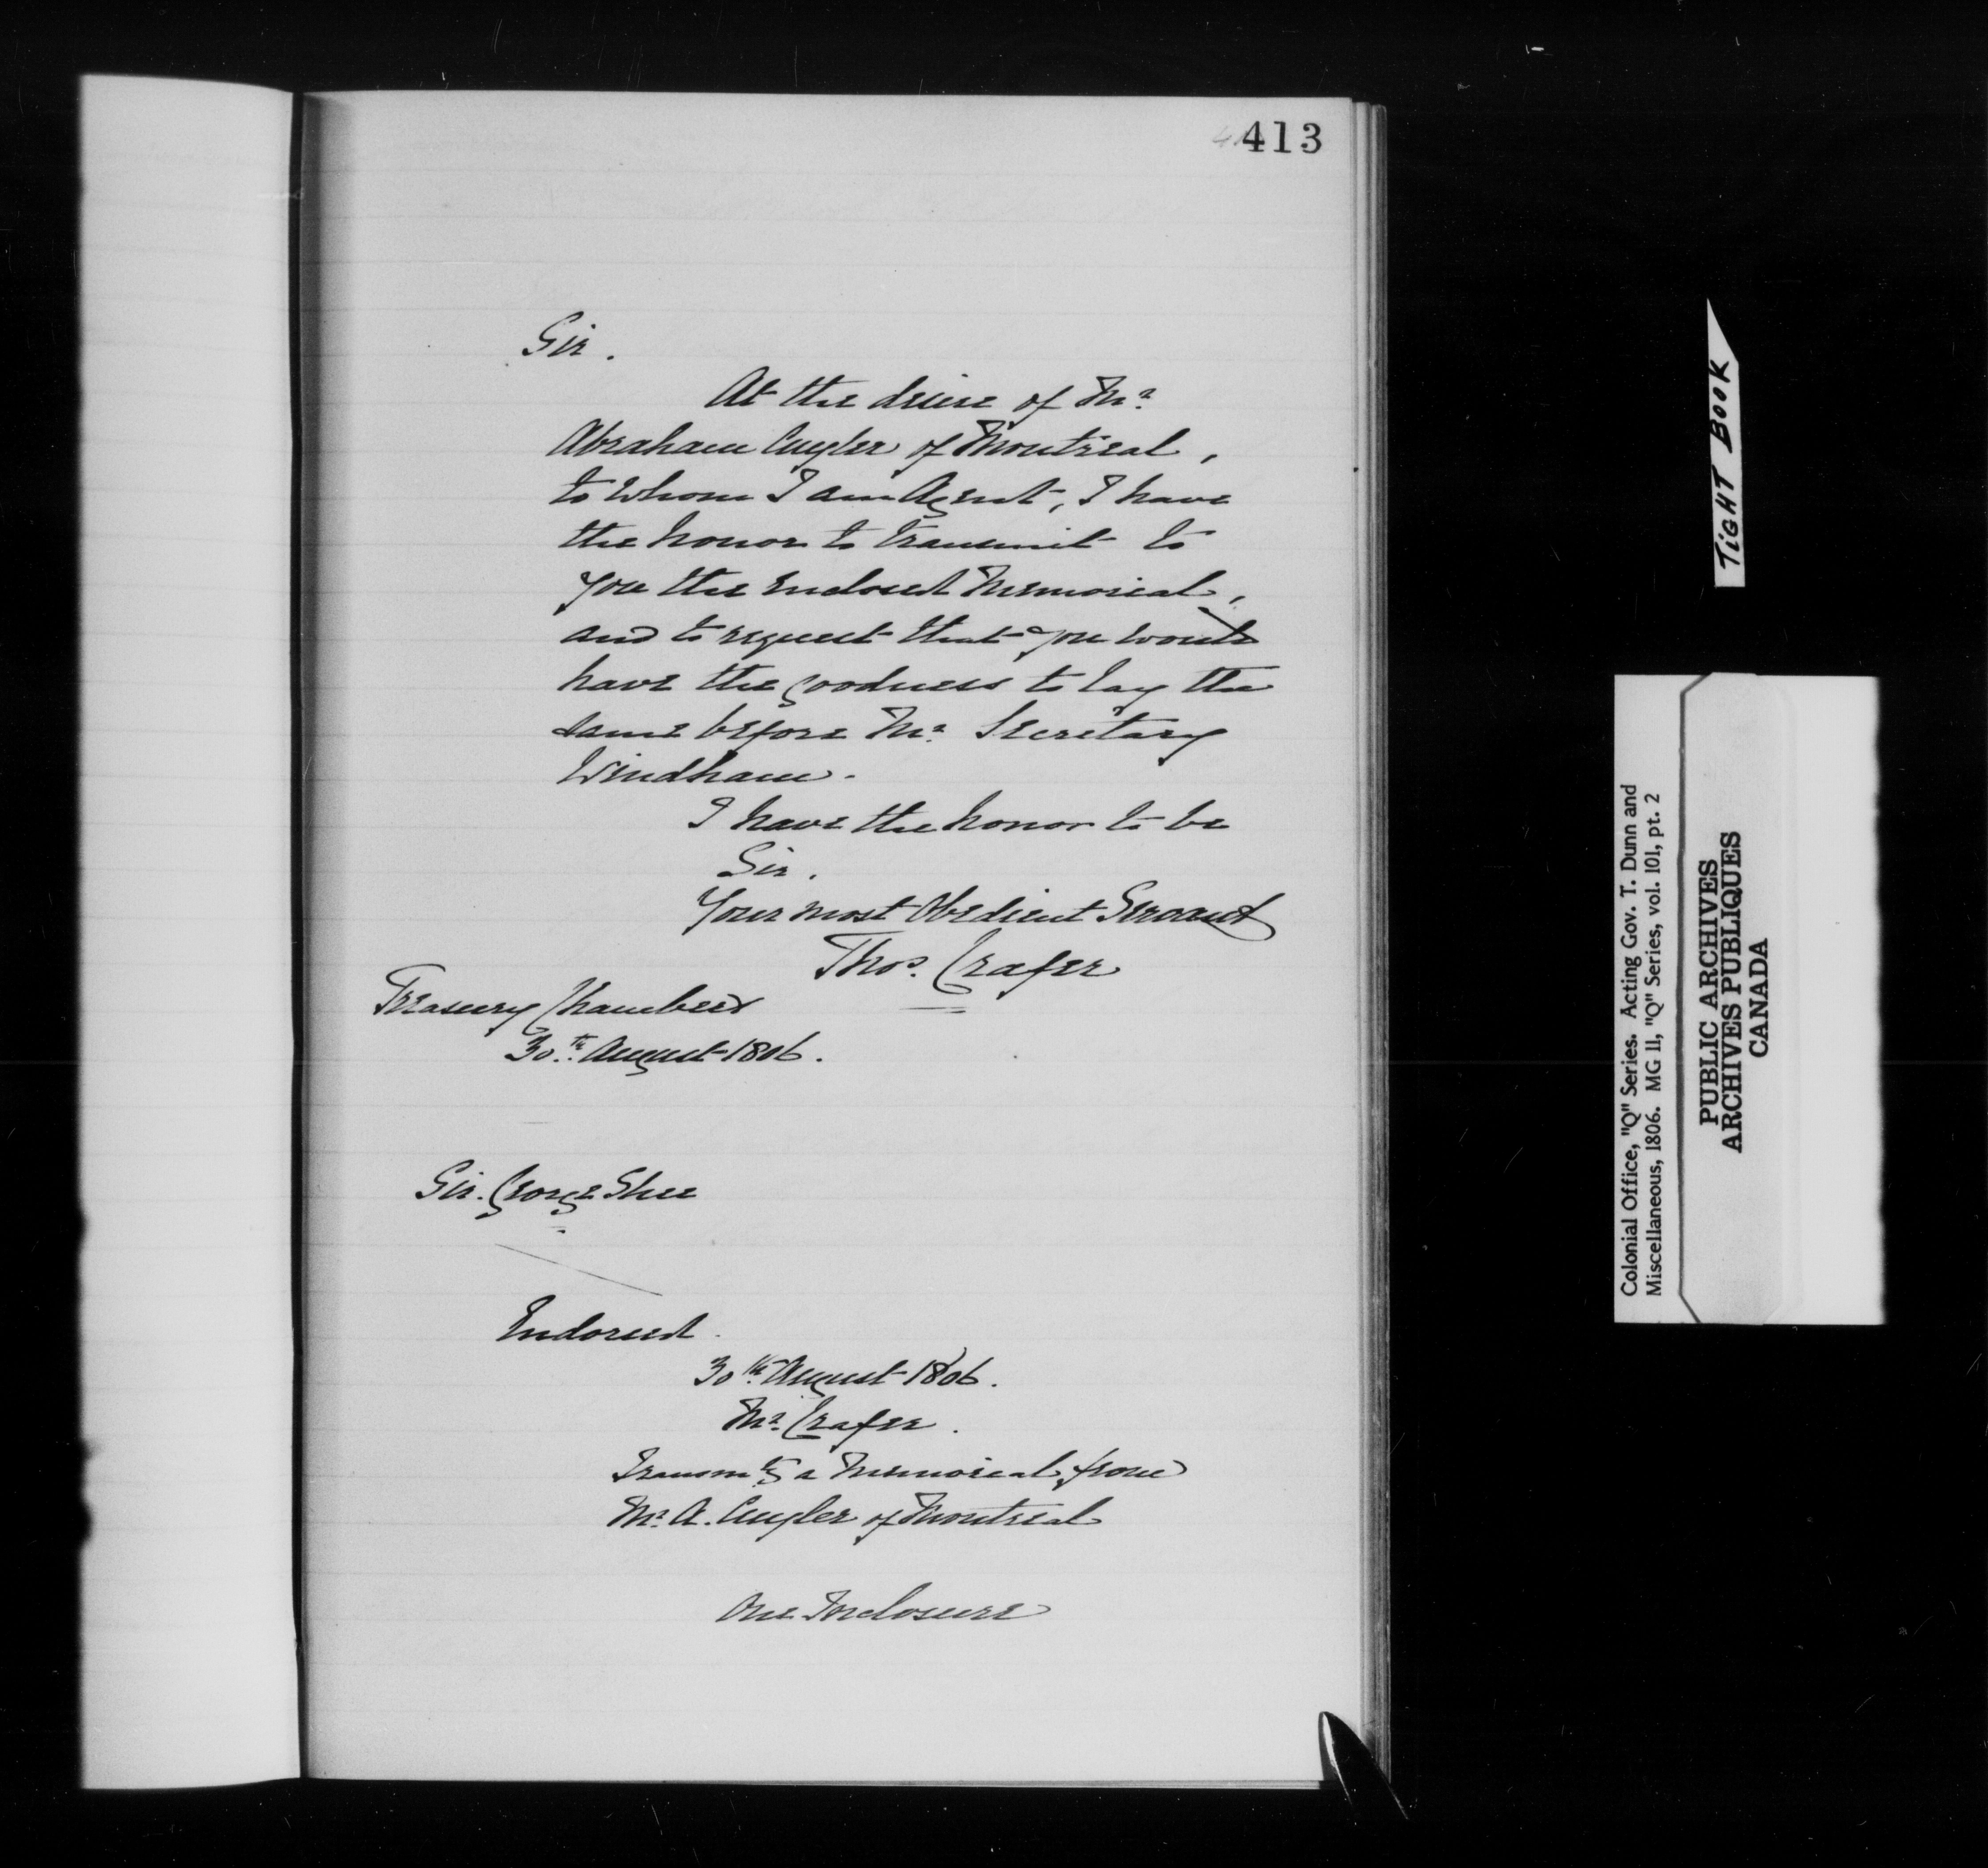 413
Sir.
At the desire of Mr.
Abraham Cuyler of Montreal,
to whom I am Agent, I have
the honor to transmit to
you the enclosed Memorial,
and to request that you would
have the goodness to lay the
same before Mr. Secretary
Windham.
I have the honor to be
Sir.
Your most Obedient Servant
Thos. Crafer
Treasury Chambers
30th. August 1806.
Sir. George Shee
Endorsed.
30th. August 1806.
Mr. Crafer.
Transmtg a Memorial from
Mr. A. Cuyler of Montreal
One Inclosure
TIGHT BOOK
Colonial Office, "Q" Series. Acting Gov. T. Dunn and
Miscellaneous, 1806. MG 11, "Q" Series, vol. 101, pt. 2
PUBLIC ARCHIVES
ARCHIVES PUBLIQUES
CANADA